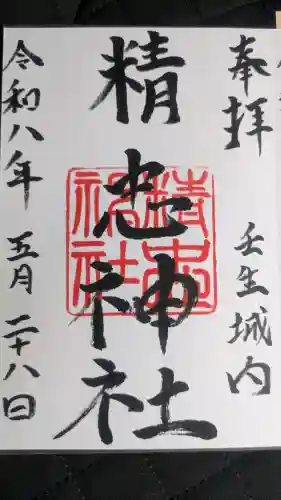 奉拝
壬生城内
精忠神社
精忠神社
令和八年
五月二十八日